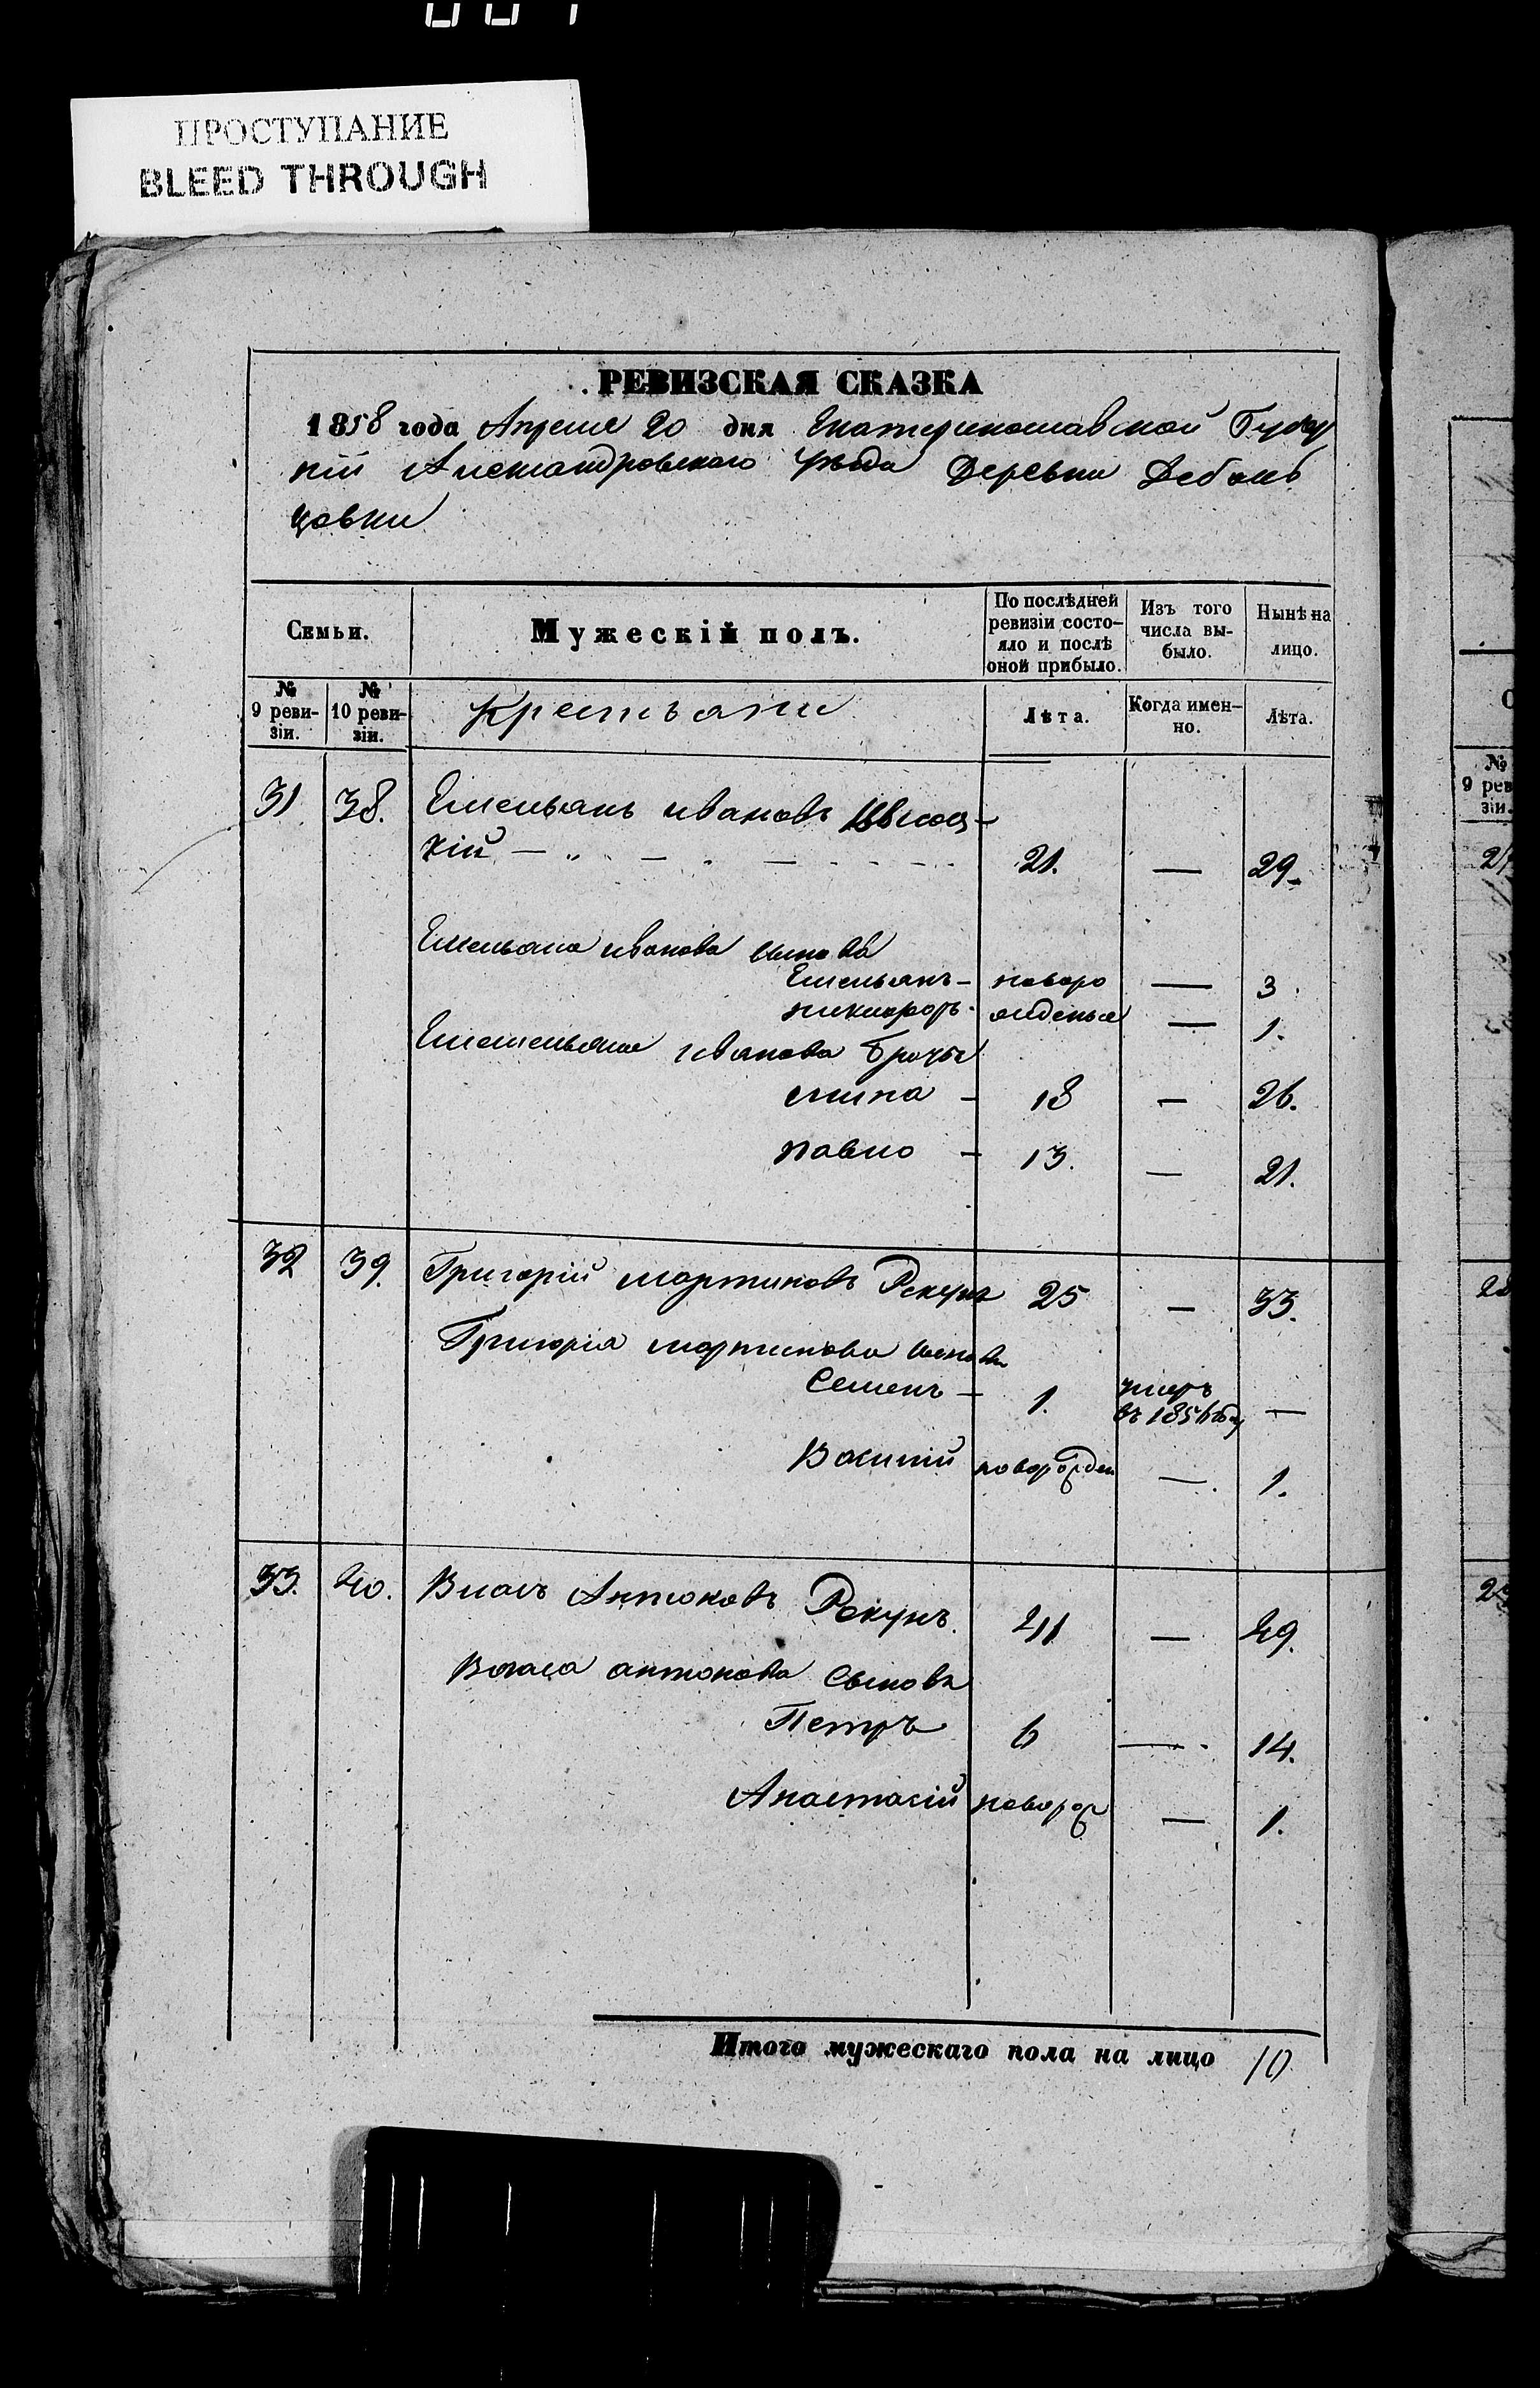 ПРОСТУПАНИЕ
BLEED THROUGH
РЕВИЗСКАЯ СКАЗКА
1858 года Апреля 20 дня Екатеринославской Губер
ніи Александровскаго Уѣзда Деревни Дебаль
цовки
Семьи.
Мужескій полъ.
По послѣдней ревизіи состо-
яло и послѣ
оной прибыло.
Изъ того
числа вы-
было.
Нынѣ на
лицо.
№
9 реви-
зіи.
№
10 реви-
зіи.
Крестьяни
Лѣта.
Когда имен-
но.
Лѣта.
31. 38. Емельянъ Ивановъ
кій — „ — „ — 21. — 29.
Емельяна Иванова сыновья
Емельянъ — новоро — 3.
никифоръ. жденые — 1.
Иванова братья
мина — 18 — 26.
павло — 13. — 21.
32 39. Григорій мартиновъ Рекунъ 25 — 33.
Григорія мартинова сыновья
Семенъ — 1. умеръ
въ 1856 году —
Василій новорожден — 1.
33. 40. Власъ Антоновъ Рекунъ. 41 — 49.
Власа антонова Сыновья
Петръ 6 — 14.
Анастасій новорож — 1.
Итого мужескаго пола на лицо 10
№
9 рев
зіи.